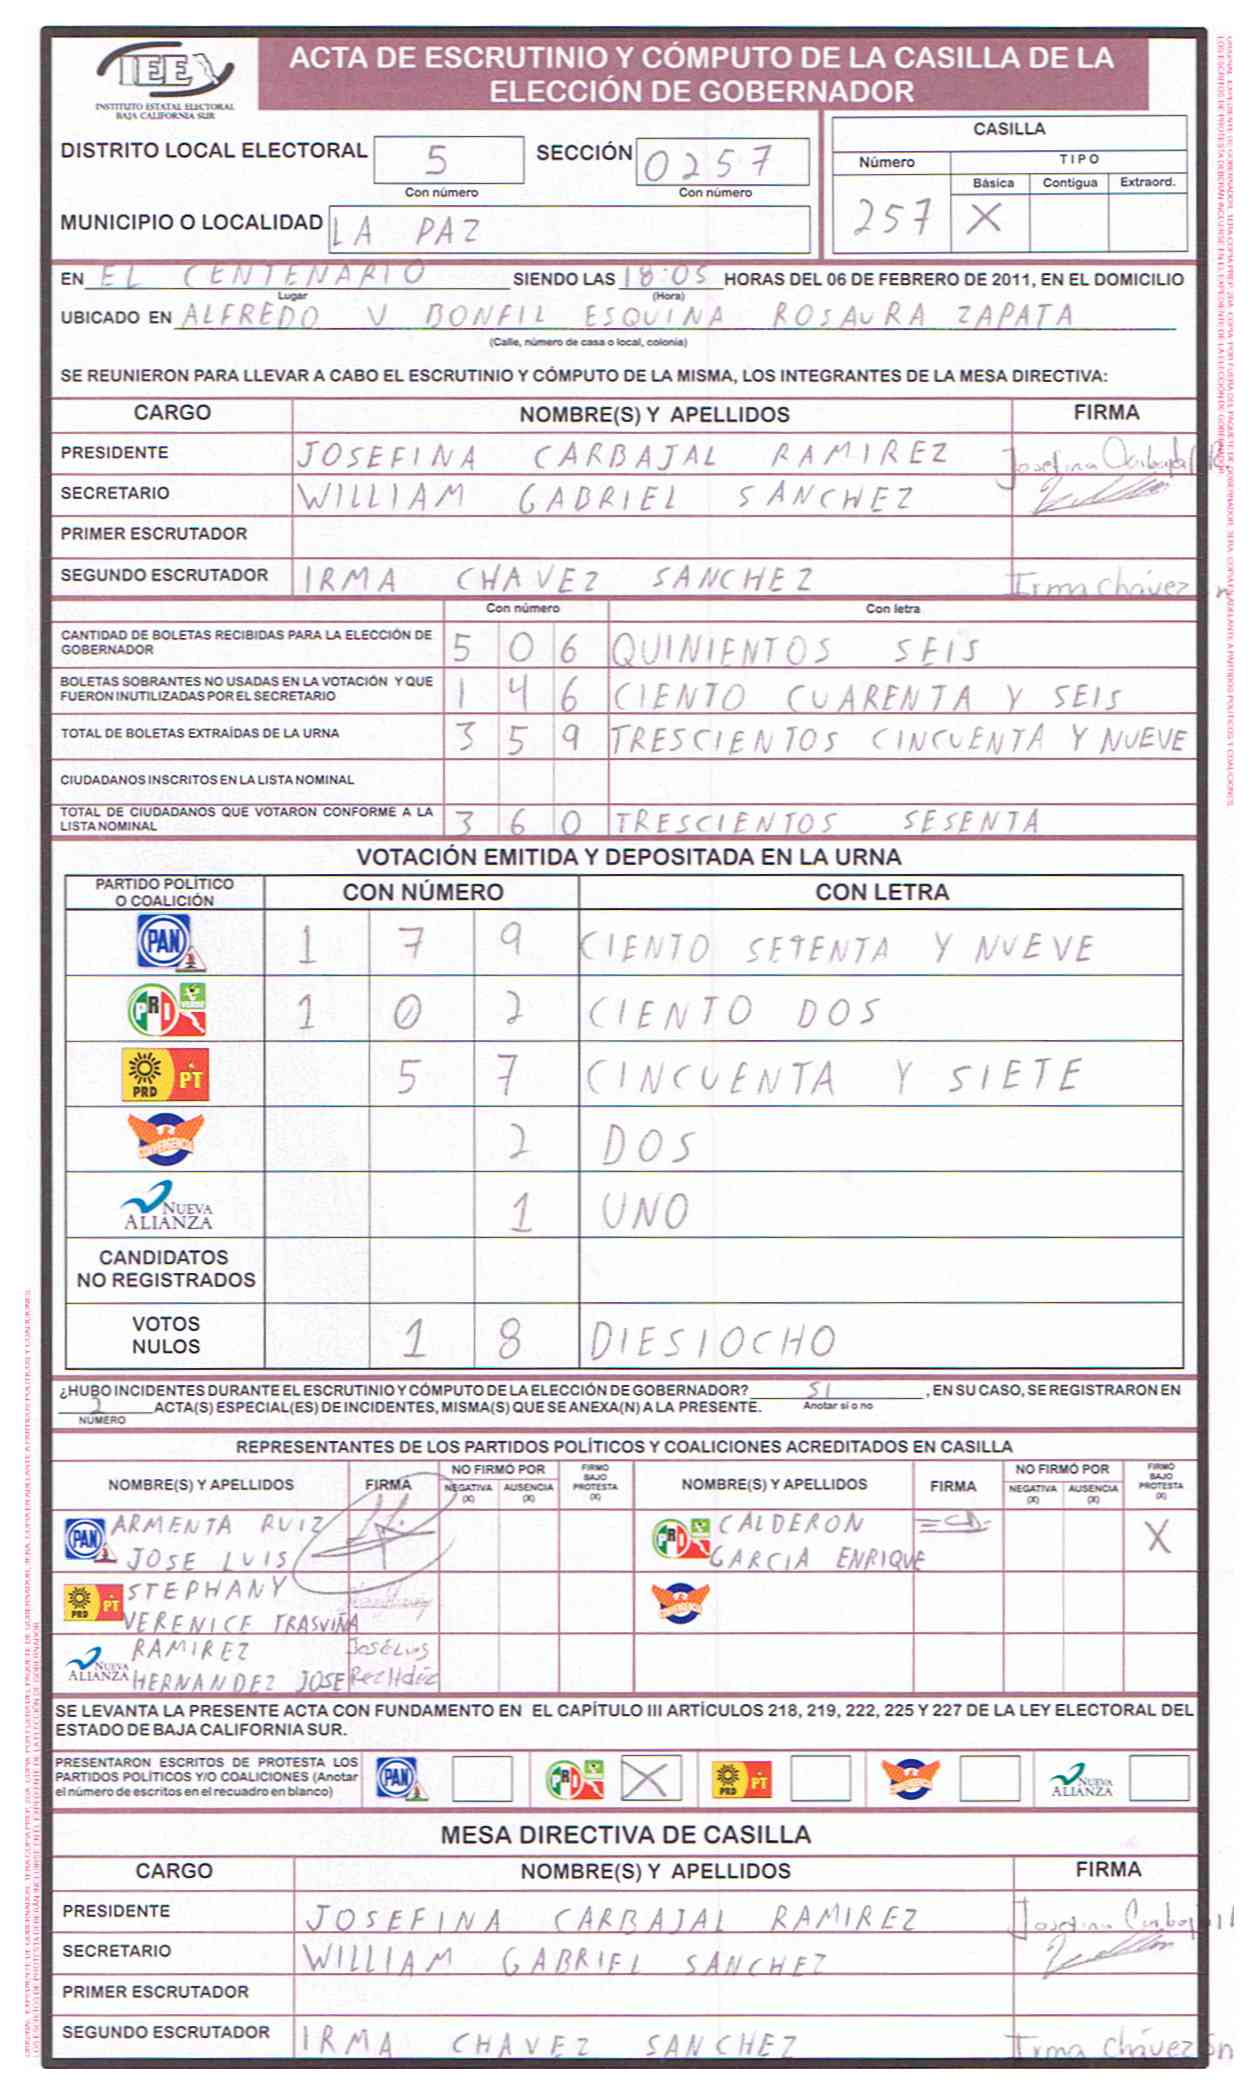 IEE
INSTITUTO ESTATAL ELECTORAL
BAJA CALIFORNIA SUR
ACTA DE ESCRUTINIO Y CÓMPUTO DE LA CASILLA DE LA
ELECCIÓN DE GOBERNADOR
DISTRITO LOCAL ELECTORAL 5 SECCIÓN 0257
Con número Con número
MUNICIPIO O LOCALIDAD LA PAZ
CASILLA
Número TIPO
Básica Contigua Extraord.
257 X
EN EL CENTENARIO SIENDO LAS 18:05 HORAS DEL 06 DE FEBRERO DE 2011, EN EL DOMICILIO
Lugar (Hora)
UBICADO EN ALFREDO V BONFIL ESQUINA ROSAURA ZAPATA
(Calle, número de casa o local, colonia)
SE REUNIERON PARA LLEVAR A CABO EL ESCRUTINIO Y CÓMPUTO DE LA MISMA, LOS INTEGRANTES DE LA MESA DIRECTIVA:
CARGO NOMBRE(S) Y APELLIDOS FIRMA
PRESIDENTE JOSEFINA CARBAJAL RAMIREZ Josefina Carbajal R.
SECRETARIO WILLIAM GABRIEL SANCHEZ
PRIMER ESCRUTADOR
SEGUNDO ESCRUTADOR IRMA CHAVEZ SANCHEZ Irma Chávez Sn
Con número Con letra
CANTIDAD DE BOLETAS RECIBIDAS PARA LA ELECCIÓN DE
GOBERNADOR 506 QUINIENTOS SEIS
BOLETAS SOBRANTES NO USADAS EN LA VOTACIÓN Y QUE
FUERON INUTILIZADAS POR EL SECRETARIO 146 CIENTO CUARENTA Y SEIS
TOTAL DE BOLETAS EXTRAÍDAS DE LA URNA 359 TRESCIENTOS CINCUENTA Y NUEVE
CIUDADANOS INSCRITOS EN LA LISTA NOMINAL
TOTAL DE CIUDADANOS QUE VOTARON CONFORME A LA
LISTA NOMINAL 360 TRESCIENTOS SESENTA
VOTACIÓN EMITIDA Y DEPOSITADA EN LA URNA
PARTIDO POLÍTICO
O COALICIÓN CON NÚMERO CON LETRA
PAN 1 7 9 CIENTO SETENTA Y NUEVE
PRI VERDE 1 0 2 CIENTO DOS
PRD PT 5 7 CINCUENTA Y SIETE
CONVERGENCIA 2 DOS
NUEVA
ALIANZA 1 UNO
CANDIDATOS
NO REGISTRADOS
VOTOS
NULOS 1 8 DIESIOCHO
¿HUBO INCIDENTES DURANTE EL ESCRUTINIO Y CÓMPUTO DE LA ELECCIÓN DE GOBERNADOR? SI , EN SU CASO, SE REGISTRARON EN
2 ACTA(S) ESPECIAL(ES) DE INCIDENTES, MISMA(S) QUE SE ANEXA(N) A LA PRESENTE. Anotar sí o no
NÚMERO
REPRESENTANTES DE LOS PARTIDOS POLÍTICOS Y COALICIONES ACREDITADOS EN CASILLA
NOMBRE(S) Y APELLIDOS FIRMA NO FIRMÓ POR NEGATIVA (X) AUSENCIA (X) FIRMÓ BAJO PROTESTA (X) NOMBRE(S) Y APELLIDOS FIRMA NO FIRMÓ POR NEGATIVA (X) AUSENCIA (X) FIRMÓ BAJO PROTESTA (X)
PAN ARMENTA RUIZ PRI CALDERON
JOSE LUIS GARCIA ENRIQUE X
PRD PT STEPHANY CONVERGENCIA
VERENICE TRASVIÑA
NUEVA ALIANZA RAMIREZ José Luis
HERNANDEZ JOSE
SE LEVANTA LA PRESENTE ACTA CON FUNDAMENTO EN EL CAPÍTULO III ARTÍCULOS 218, 219, 222, 225 Y 227 DE LA LEY ELECTORAL DEL
ESTADO DE BAJA CALIFORNIA SUR.
PRESENTARON ESCRITOS DE PROTESTA LOS
PARTIDOS POLÍTICOS Y/O COALICIONES (Anotar
el número de escritos en el recuadro en blanco) PAN PRI X PRD PT CONVERGENCIA NUEVA ALIANZA
MESA DIRECTIVA DE CASILLA
CARGO NOMBRE(S) Y APELLIDOS FIRMA
PRESIDENTE JOSEFINA CARBAJAL RAMIREZ Josefina Carbajal
SECRETARIO WILLIAM GABRIEL SANCHEZ
PRIMER ESCRUTADOR
SEGUNDO ESCRUTADOR IRMA CHAVEZ SANCHEZ Irma Chávez Sn